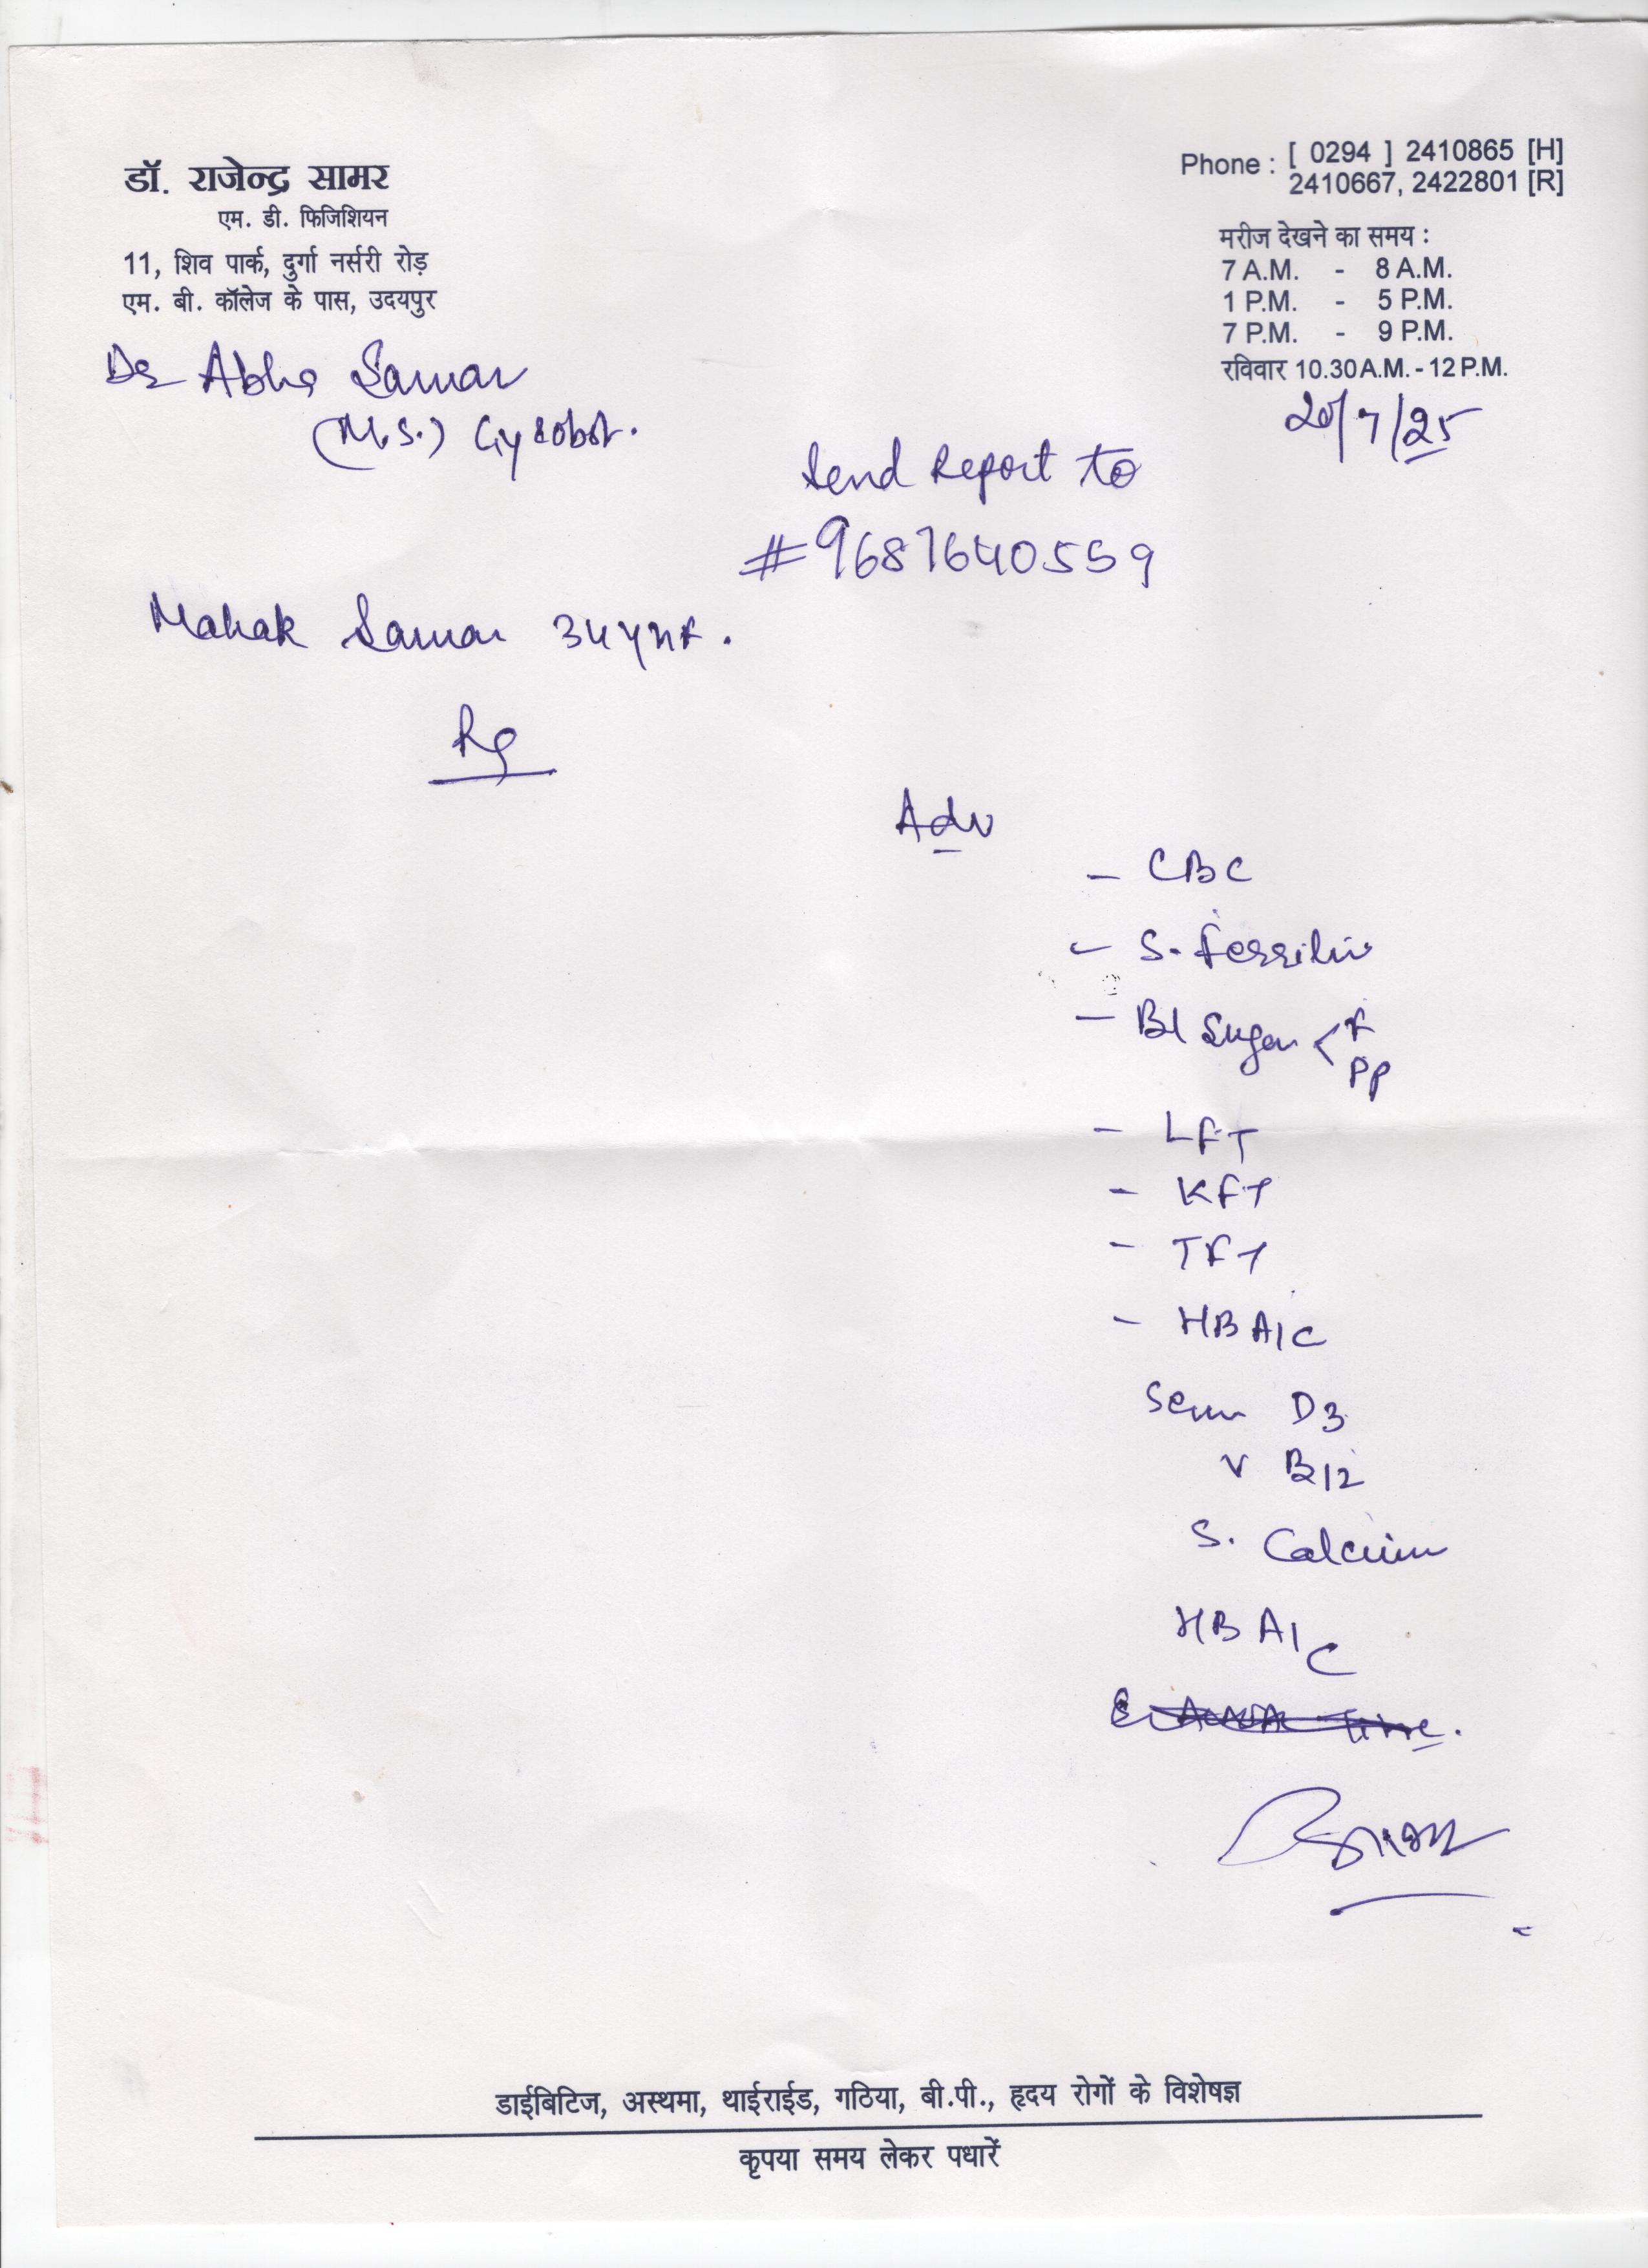 डॉ. राजेन्द्र सामर
एम. डी. फिजिशियन
11, शिव पार्क, दुर्गा नर्सरी रोड़
एम. बी. कॉलेज के पास, उदयपुर
Phone : [ 0294 ] 2410865 [H]
2410667, 2422801 [R]
मरीज देखने का समय :
7 A.M. - 8 A.M.
1 P.M. - 5 P.M.
7 P.M. - 9 P.M.
रविवार 10.30 A.M. - 12 P.M.
Dr Abha Samar
(M.S.)
/7/25
Send Report to
#9687640559
Mahak Samar 34 yr
Adv
- CBC
- S. Ferritin
- Bl Sugar < F
PP
- LFT
- KFT
- TFT
- HBA1C
Serum D3
V B12
S. Calcium
HBA1C
डाईबिटिज, अस्थमा, थाईराईड, गठिया, बी.पी., हृदय रोगों के विशेषज्ञ
कृपया समय लेकर पधारें